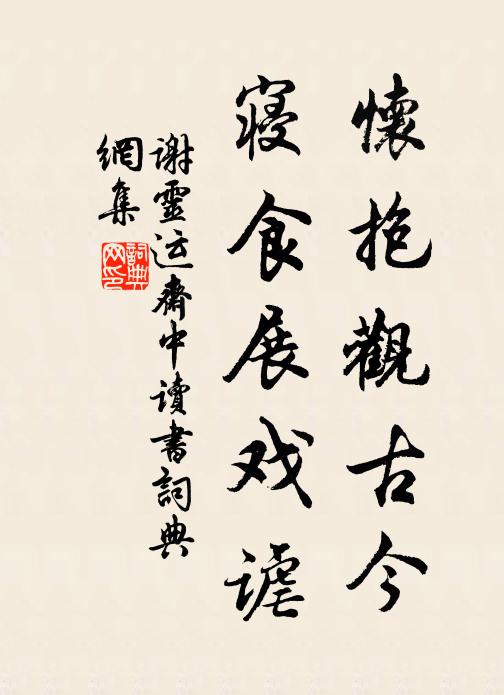 懷抱觀古今
寢食展戏謔
谢靈运齋中讀書詞典
網集
詞典网印